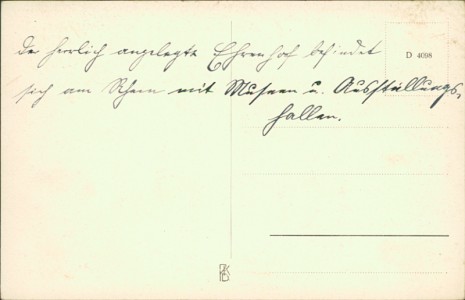 Der herrlich angelegte Ehrenhof befindet
sich am Rhein mit Museen u. Ausstellungs-
hallen.
D 4098